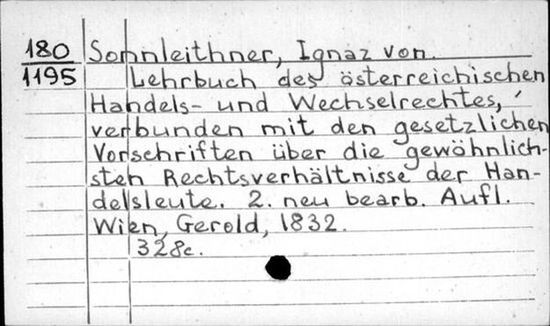 180 Sonnleithner, Ignaz von.
1195 Lehrbuch des österreichischen
Handels- und Wechselrechtes,
verbunden mit den gesetzlichen
Vorschriften über die gewöhnlich-
sten Rechtsverhältnisse der Han-
delsleute. 2. neu bearb. Aufl.
Wien, Gerold, 1832.
328c.